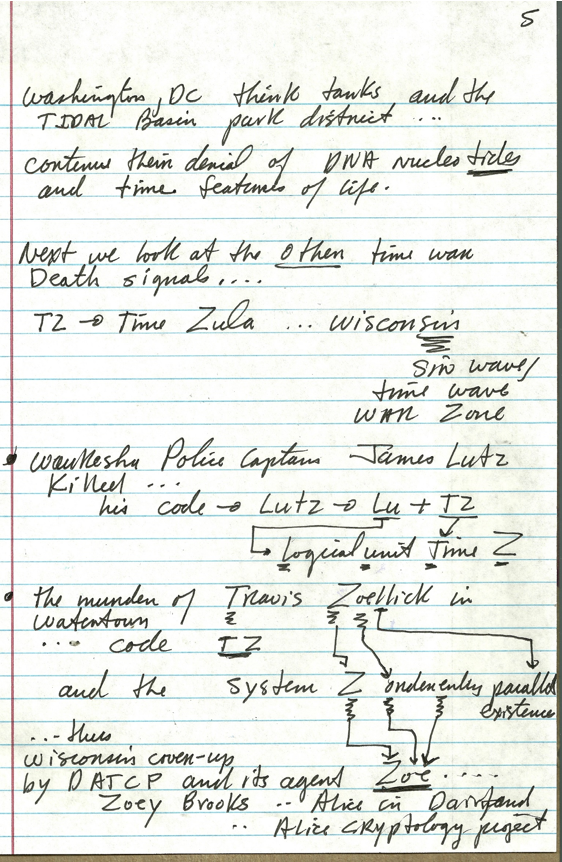 5
Washington, DC think tanks and the
TIDAL Basin park district ....
continue their denial of DNA nucleotides
and time features of life.
Next we look at the other time war
Death signals....
TZ → Time Zula ... Wisconsin
Sin wave/
time wave
WAR Zone
• Waukesha Police Captain James Lutz
Killed ...
his code → Lutz → Lu + TZ
Logical unit Time Z
• the murder of Travis Zoellick in
Watertown
.... code TZ
and the system Z onderenently parallel
existence
... thus
Wisconsin cover-up
by DATCP and its agent Zoe ....
Zoey Brooks .. Alice in Dairyland
.. Alice CRyptology project